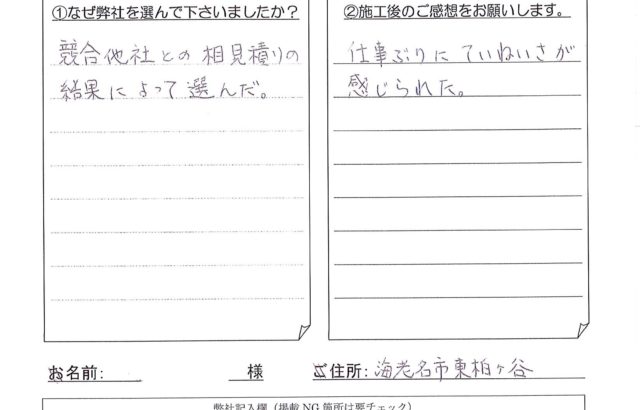 ①なぜ弊社を選んで下さいましたか？
競合他社との相見積りの
結果によって選んだ。
②施工後のご感想をお願いします。
仕事ぶりにていねいさが
感じられた。
お名前: 様
ご住所: 海老名市東柏ヶ谷
弊社記入欄（掲載NG箇所は要チェック）